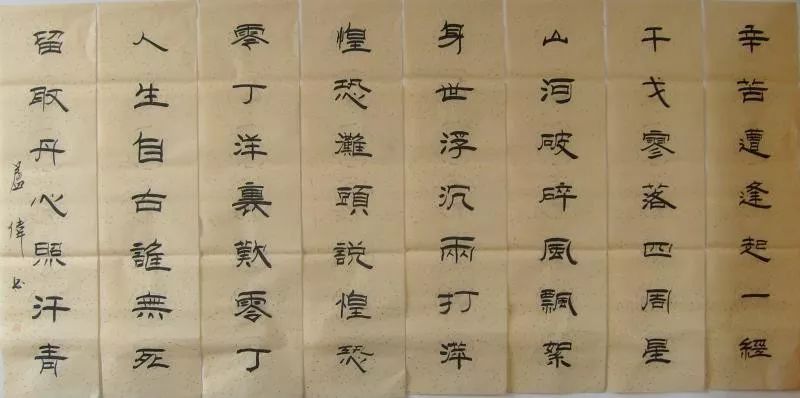 辛苦遭逢起一經
干戈寥落四周星
山河破碎風飄絮
身世浮沉雨打萍
惶恐灘頭説惶恐
零丁洋裏歎零丁
人生自古誰無死
留取丹心照汗青
偉书